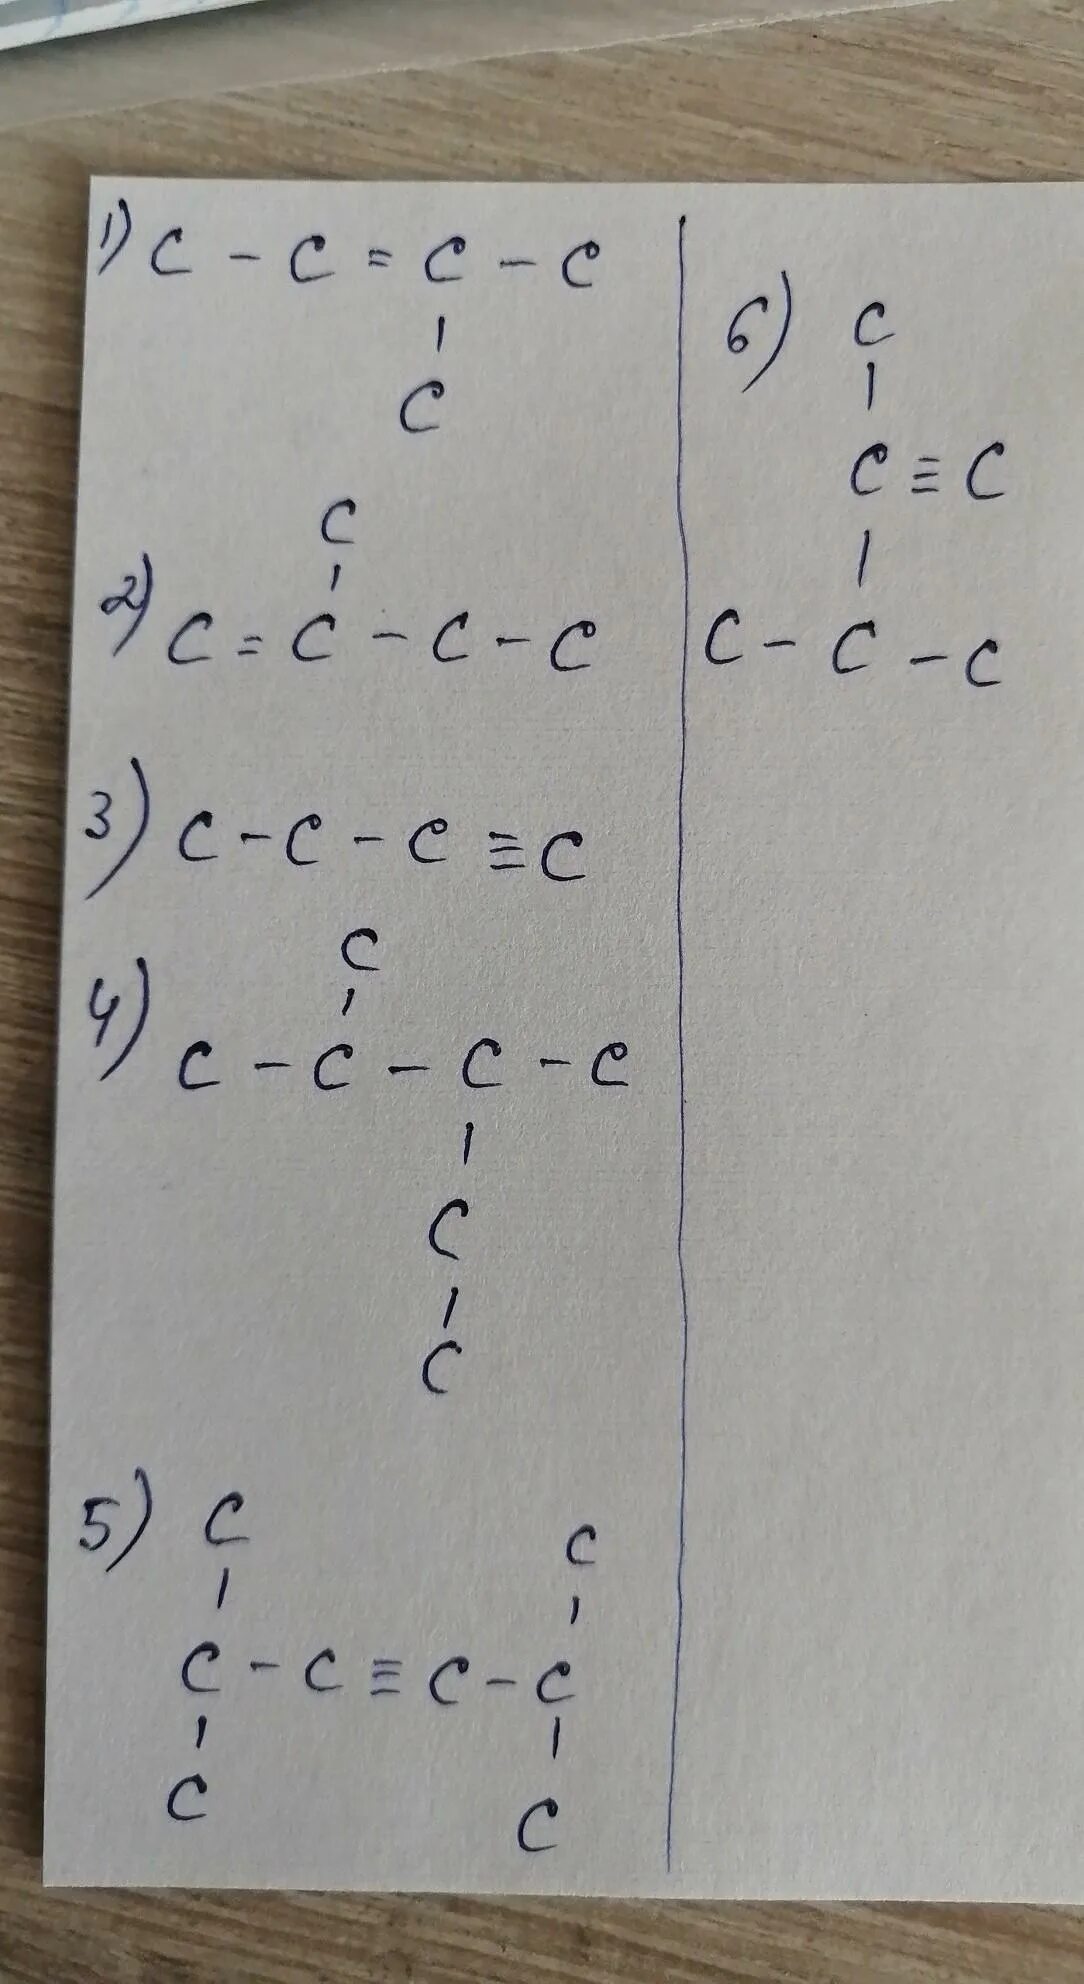 1) C - C = C - C
|
C
C
|
2) C = C - C - C
3) C - C - C ≡ C
C
|
4) C - C - C - C
|
C
|
C
5) C C
| |
C - C ≡ C - C
| |
C C
6) C
|
C ≡ C
|
C - C - C